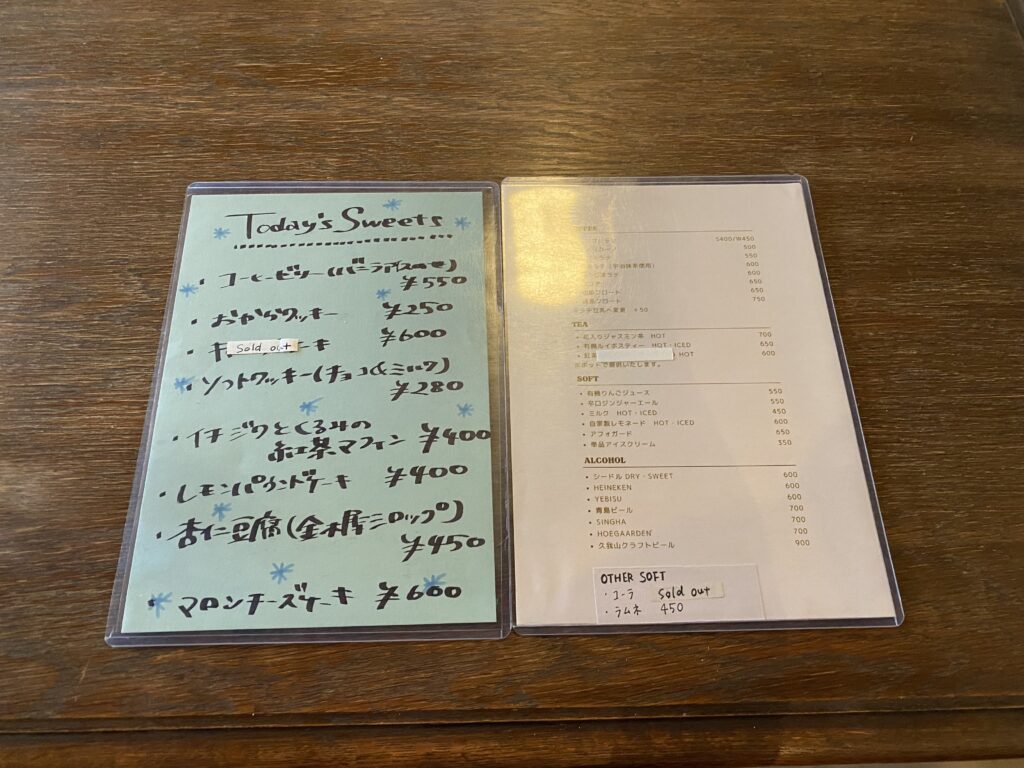 Today's Sweets
・コーヒーゼリー(バニラアイスのせ)
¥550
・おからクッキー ¥250
・ Sold out ーキ ¥600
・ソフトクッキー(チョコ&ミルク)
¥280
・イチジクとくるみの
紅茶マフィン ¥400
・レモンパウンドケーキ ¥400
・杏仁豆腐(金木犀シロップ)
¥450
・マロンチーズケーキ ¥600
S400/W450
500
550
600
600
650
フロート 650
フロート 750
豆乳へ変更 +50
TEA
・花入りジャスミン茶 HOT 700
・有機ルイボスティー HOT・ICED 650
・紅茶 HOT 600
※ポットで提供いたします。
SOFT
・有機りんごジュース 550
・辛口ジンジャーエール 550
・ミルク HOT・ICED 450
・自家製レモネード HOT・ICED 600
・アフォガード 650
・単品アイスクリーム 350
ALCOHOL
・シードル DRY・SWEET 600
・HEINEKEN 600
・YEBISU 600
・青島ビール 700
・SINGHA 700
・HOEGAARDEN 700
・久我山クラフトビール 900
OTHER SOFT
・コーラ Sold out
・ラムネ 450